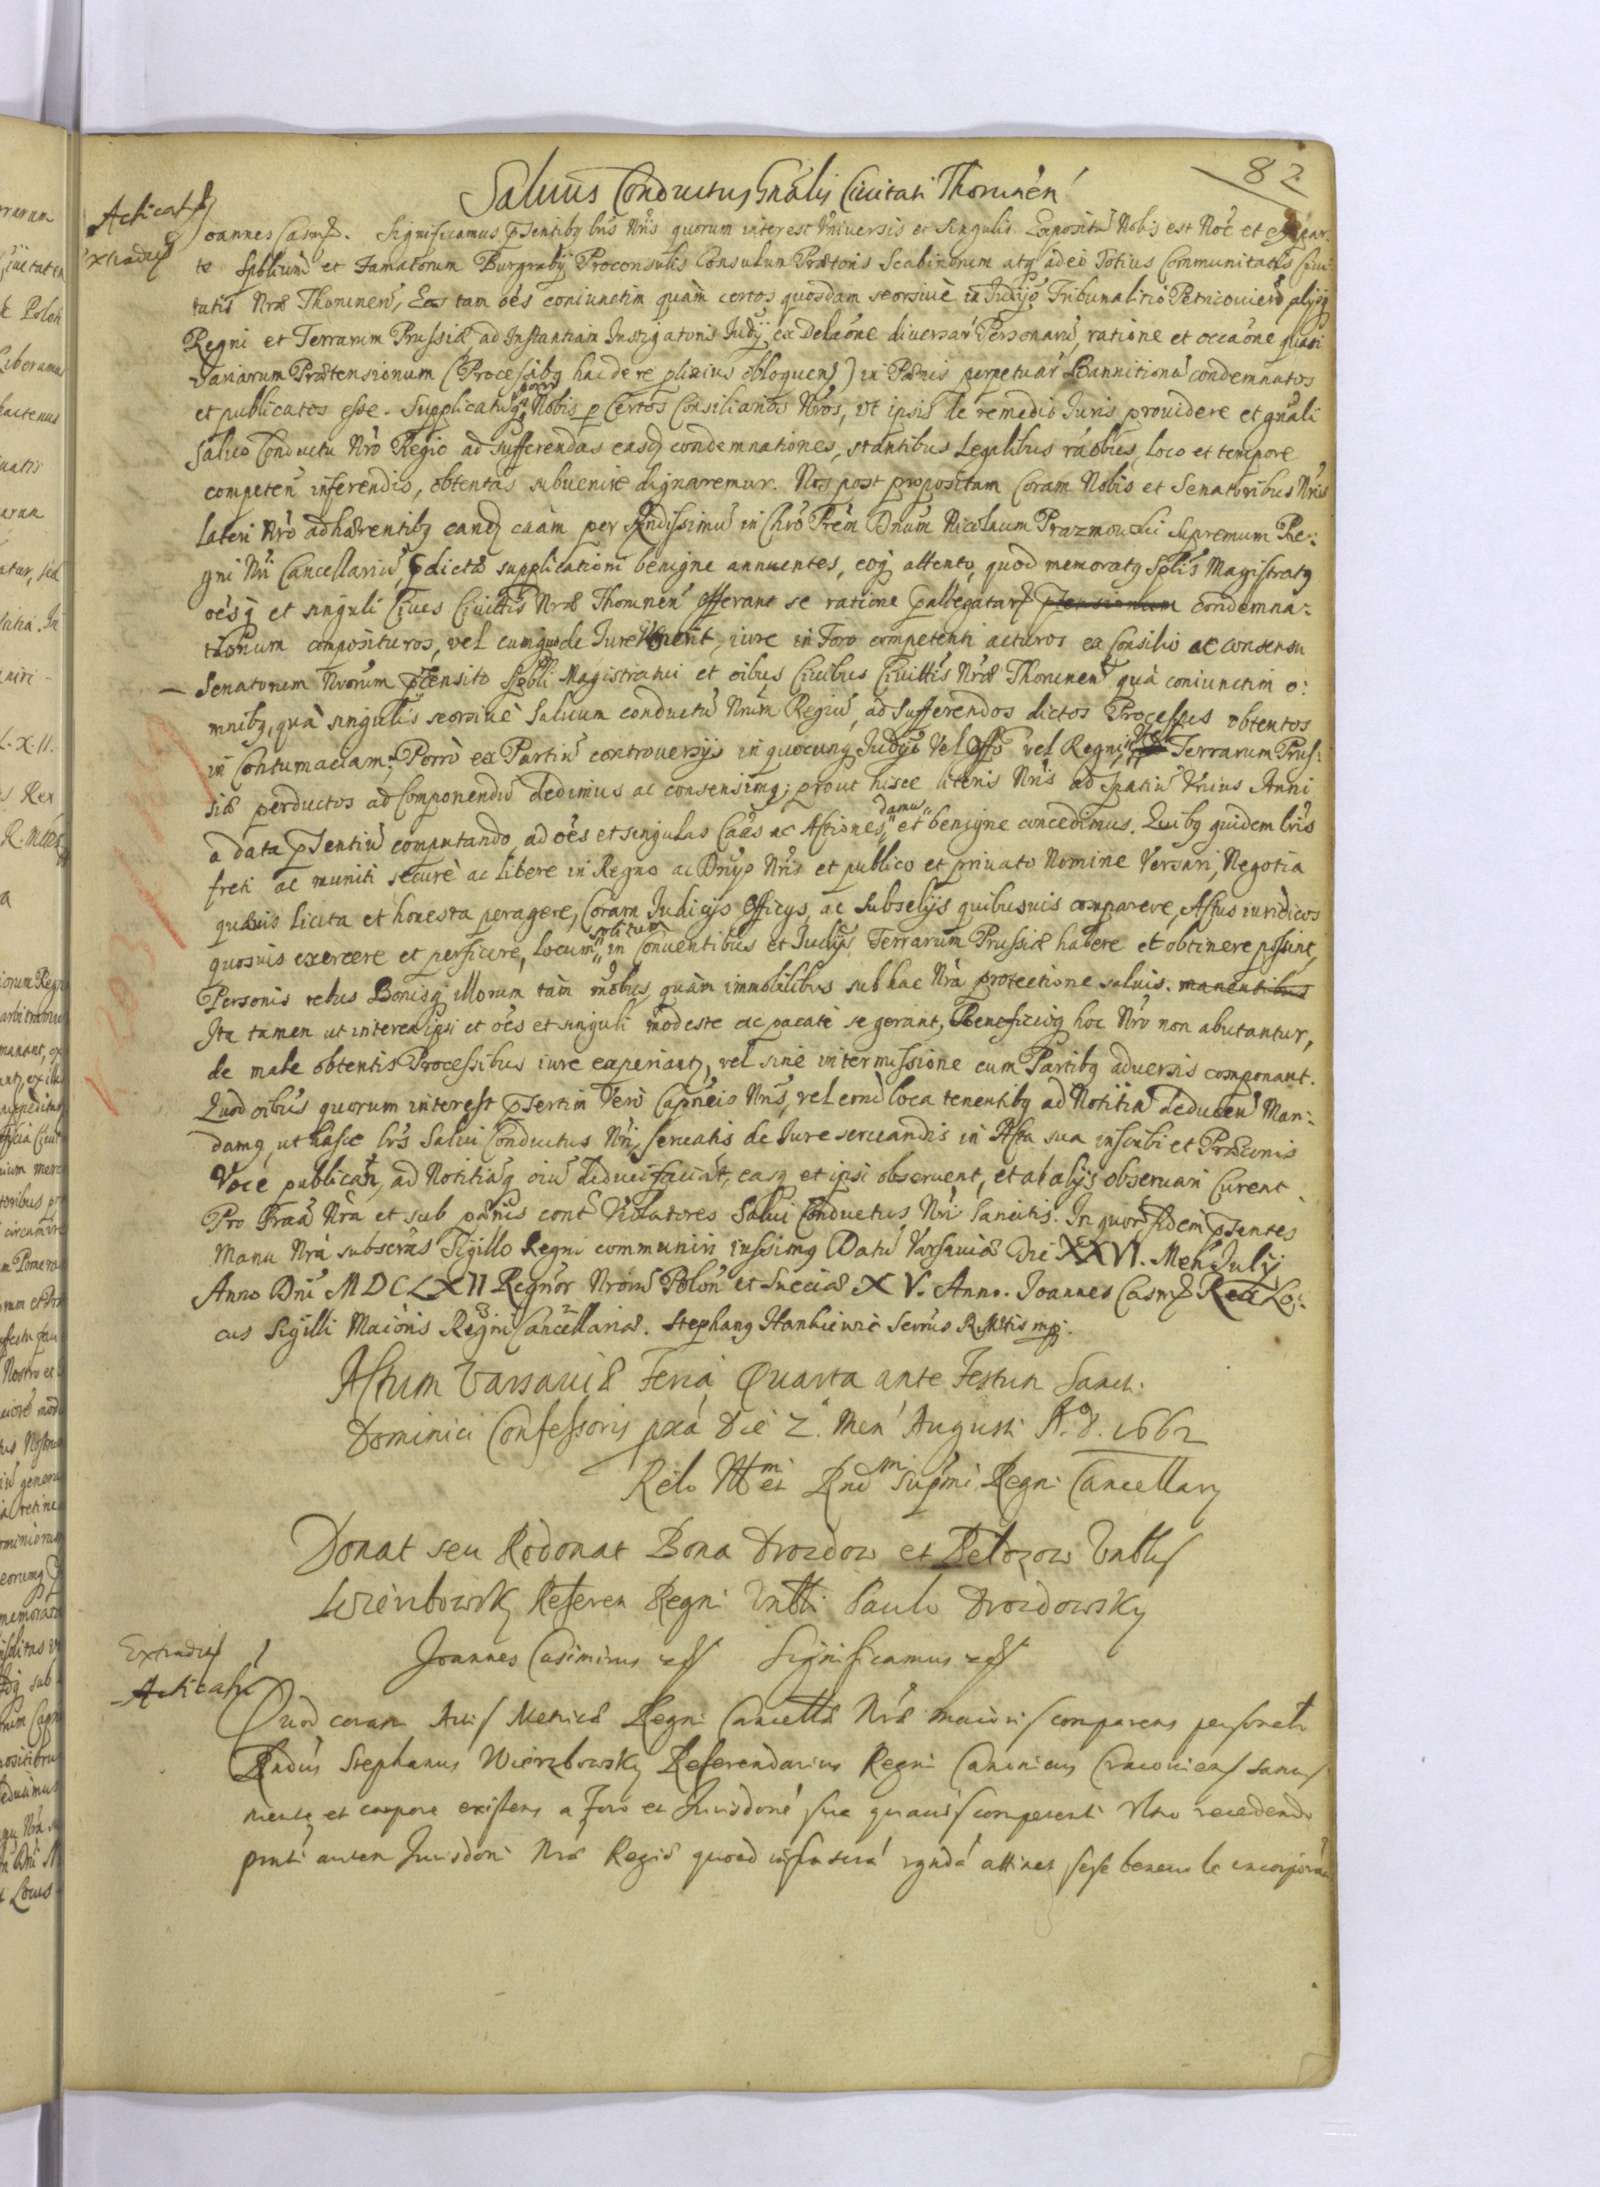 82
Saluus Conductus Gnalis Ciuitati Thorunen
Acticat
Extradit
Joannes Casim. Significamus pntibq lris Nris quorum interest Vniuersis et Singulis. Expositu Nobis est Noe et expar:
te Spblium et Famatorum Burgrabij Proconsulis Consulum Prætoris Scabinorum atq adeo Totius Communitatis Ciui
tatis Nræ Thorunen, Eos tam oes coniunctim quàm certos quosdam seorsiuè in Judijs Tribunalitio Petricouien alijsq
Regni et Terrarum Prussiæ ad Instantiam Instigatoris Judij ex Delaone diuersar Personaru, ratione et occaone quasi
variarum Prætensionum (Processibq hac de re plixius obloquen) in Pænis perpetuar Bannitionu condemnatos
et publicatos esse. Supplicatuq porro Nobis p Certos Consiliarios Nros, vt ipsis de remedio Juris prouidere et gnali
Saluo Conductu Nro Regio ad sufferendas easd condemnationes, stantibus Legalibus raobus, loco et tempore
competen inferendis, obtentas subuenire dignaremur. Nos post propositam Coram Nobis et Senatoribus Nris
Lateri Nro adhærentibq eand caam per Rndissimu in Chro Prem Dnum Nicolaum Prazmouski Supremum Re:
gni Nri Cancellariu, pdictæ supplicationi benigne annuentes, eoq attento, quod memoratq Splis Magistratq
oesq et singuli Ciues Ciuittis Nræ Thorunen offerant se ratione pallegatar ptensionum condemna:
tionum composituros, vel cum quo de Jure venerit, iure in Foro competenti acturos ex Consilio ac consensu
Senatorum Nrorum ptensito Spbli Magistratui et oibus Ciuibus Ciuittis Nræ Thorunen quà coniunctim o:
mnibq, quà singulis seorsiuè Saluum conductu Nrum Regiu, ad sufferendos dictos Processus obtentos
in Contumaciam; Porrò ex Partiu controuersijs in quocunq Judijo Vel Offo vel Regni vel Terrarum Prus:
siæ perductos ad Componendu dedimus ac consensimq; prout hisce literis Nris ad spatiu Vnius Anni
a data pntiu computando ad oes et singulas Caas ac Actiones, damus et benigne concedimus. Quibq quidem lris
freti ac muniti securè ac libere in Regno ac Dnijs Nris et publico et priuato Nomine Versari, Negotia
quæuis licita et honesta peragere, Coram Judicijs Officijs, ac Subselijs quibusuis comparere, Actus iuridicos
quosuis exercere et perficere, Locum solitum in Conuentibus et Judijs Terrarum Prussiæ habere et obtinere possint,
Personis rebus Bonisq illorum tàm mobus, quàm immobilibus sub hac Nra protectione saluis. manentibus
Ita tamen ut interea ipsi et oes et singuli modeste ac pacatè se gerant, Beneficioq hoc Nro non abutantur,
de male obtentis Processibus iure experiantr, vel sine intermissione cum Partibq aduersis componant.
Quod oibus quorum interest psertim Vero Capneis Nris, vel eoru loca tenentibq ad Notitia deducen Man:
damq, ut hasce lrs Salui Conductus Nri, seruatis de Jure seruandis in Acta sua inscribi et Præconis
Voce publicari, ad Notitiaq oiu deduci faciat, easq et ipsi obseruent, et ab alijs obseruari Curent
Pro Graa Nra et sub pænis cont Violatores Salui Conductus Nri Sancitis. In quor fidem pntes
Manu Nra subscras Sigillo Regni communiri iussimq Datu Varsauiæ Die XXVI. Men Julij
Anno Dni MDCLXII Regnor Nroru Polon et Sueciæ XV. Anno. Joannes Casim Rex Lo:
cus Sigilli Maioris Regni Cancellariæ. Stephanq Hankiewic Secrius R. Mtis mp.
Actum Varsauiæ Feria Quarta ante Festum Sancti
Dominici Confessoris pxa Die 2. Men Augusti A. D. 1662
Relo Illmi et Rndmi Supmi Regni Cancellarij
Donat seu Redonat Bona Drozdow et Belozow Vnbly
Wierzbowsky Referen Regni Vnbli Paulo Drozdowsky
Extradit
Acticat
Joannes Casimirus Significamus
Quod coram Actis Metricæ Regni Cancellæ Nræ maioris comparens personalr
Rndus Stephanus Wierzbowsky Referendarius Regni Canonicus Cracouien sanus
mente et corpore existens a foro et Jurisdone sua quauis competenti Vltro recedendo
pnti autem Jurisdoni Nræ Regiæ quoad infrascra rgnda attinet sese beneuole incorporan